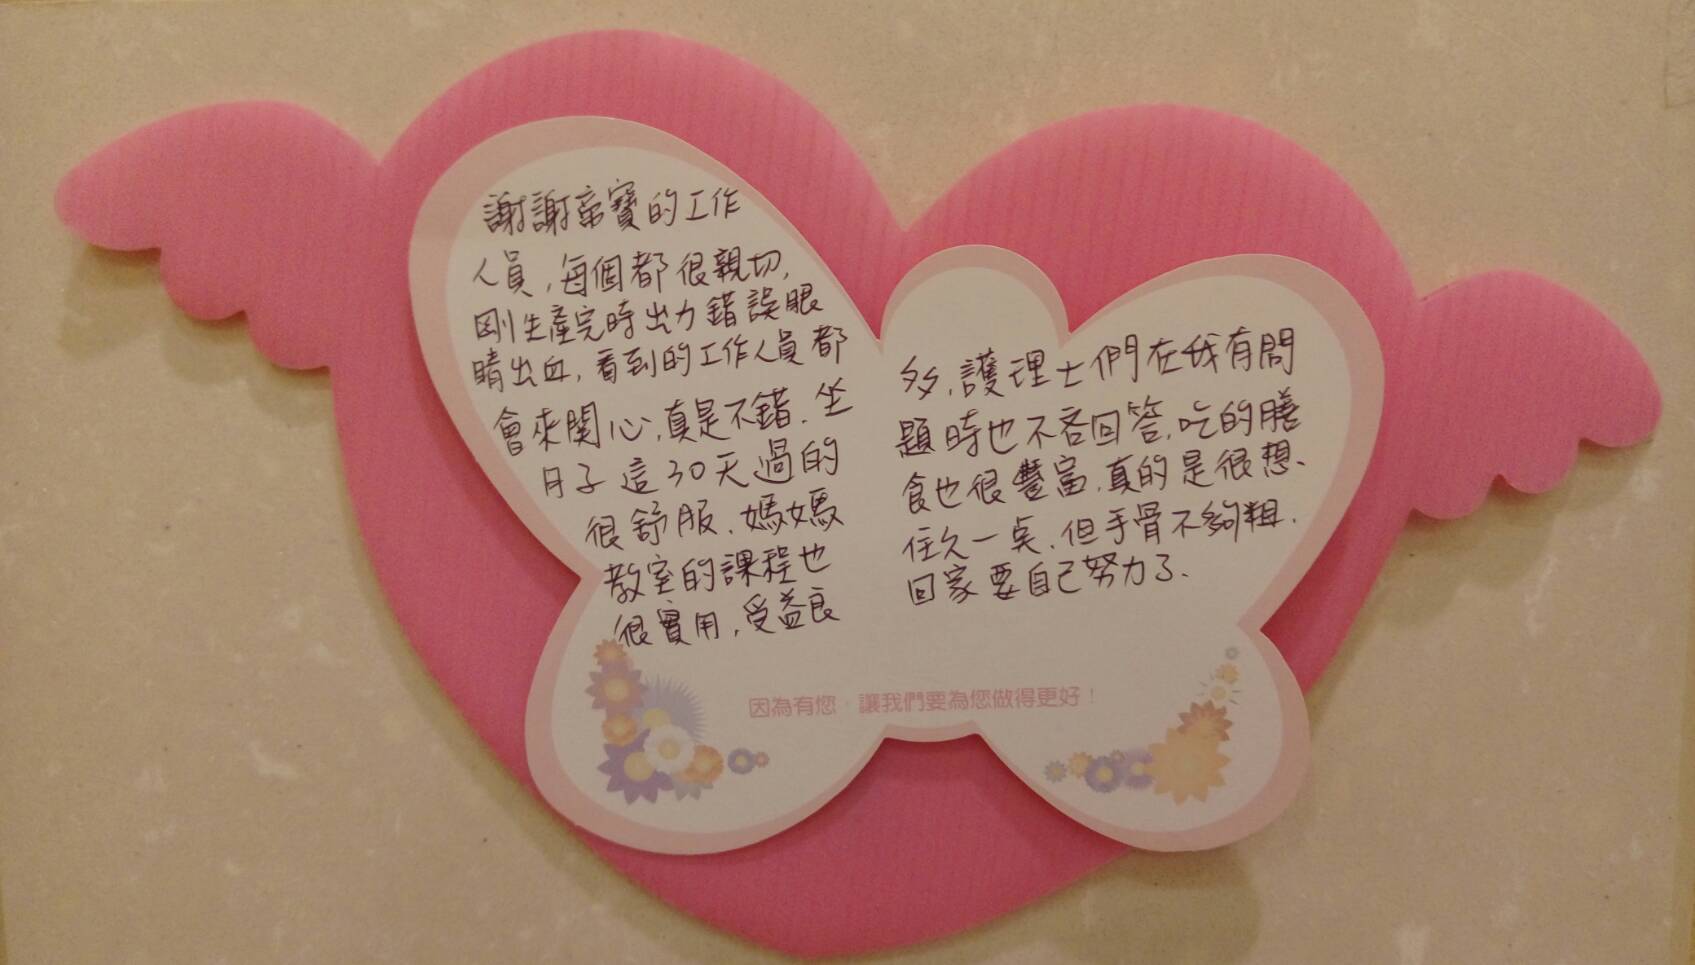 謝謝帝寶的工作
人員,每個都很親切,
剛生產完時出力錯誤眼
睛出血,看到的工作人員都
會來関心,真是不錯.坐
月子這30天過的
很舒服、媽媽
教室的課程也
很實用,受益良
多,護理士們在我有問
題時也不吝回答,吃的膳
食也很豐富,真的是很想、
住久一点,但手骨不夠粗.
回家要自己努力了、
因為有您,讓我們要為您做得更好!